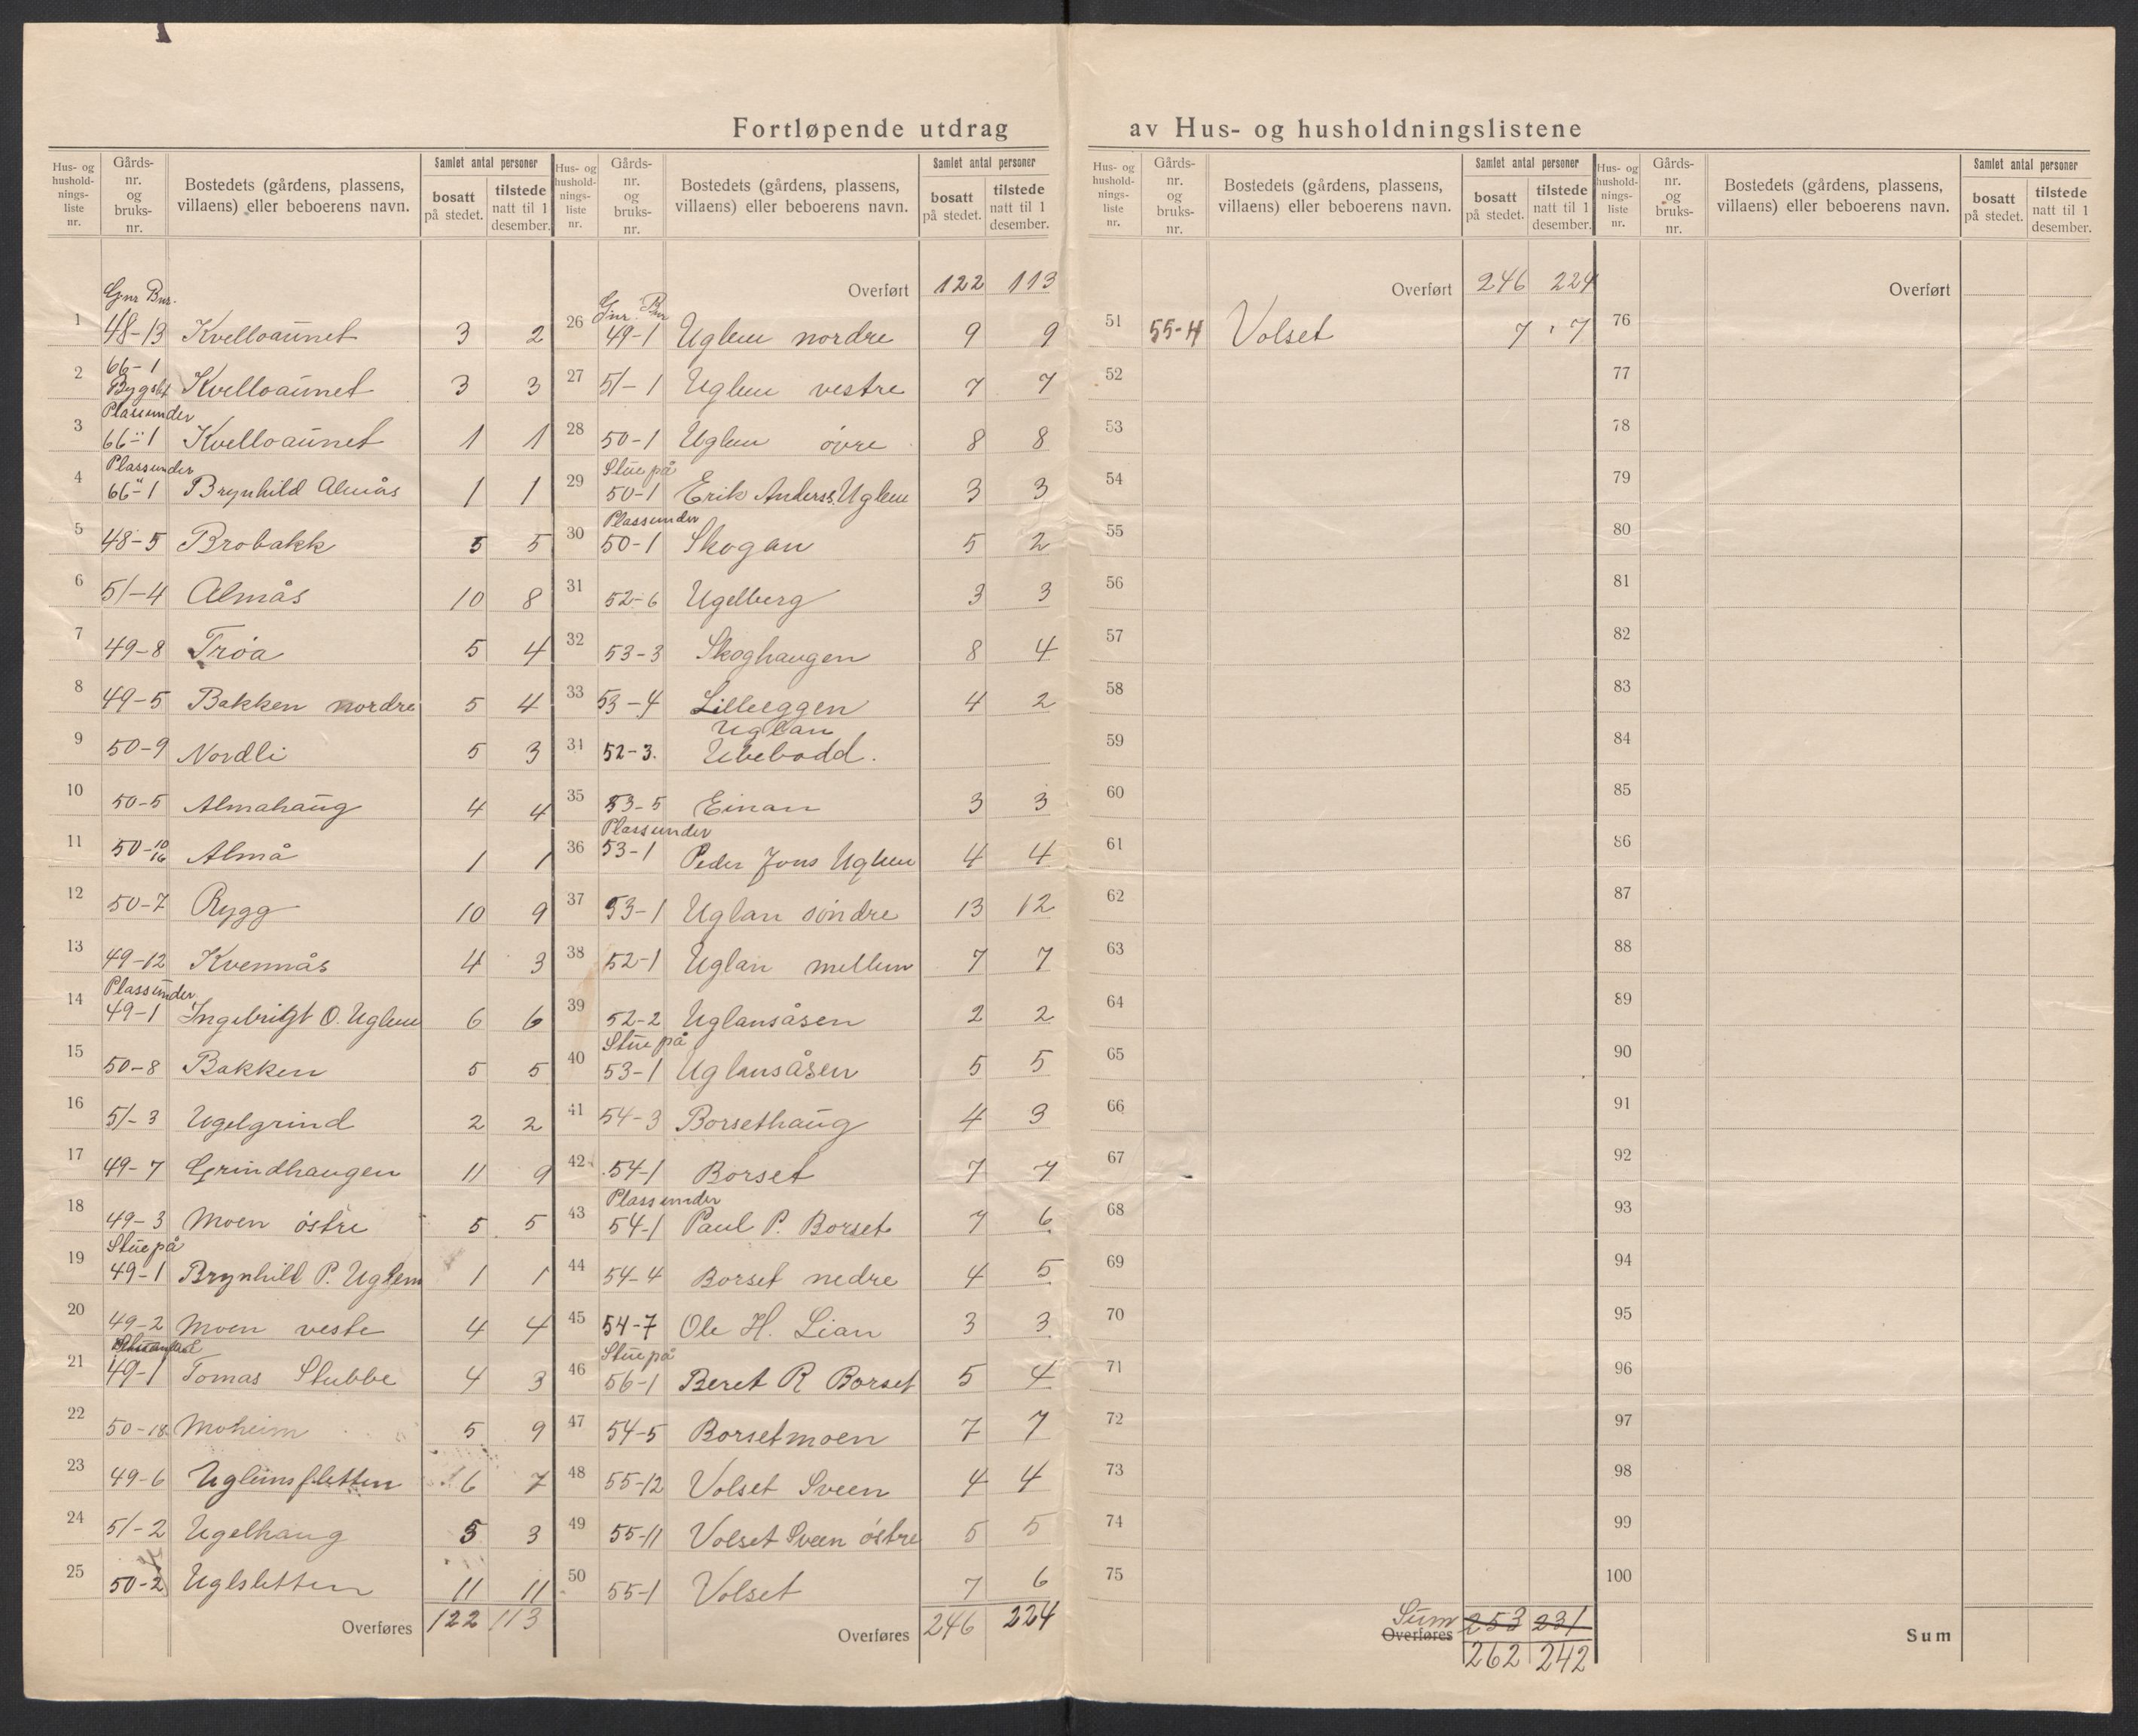 Fortløpende utdrag av Hus- og husholdningslistene
Hus- og hushold- nings- liste nr. | Gårds- nr. og bruks- nr. | Bostedets (gårdens, plassens, villaens) eller beboerens navn. | Samlet antal personer | bosatt på stedet. | tilstede natt til 1 desember.
Gnr Bnr.
1 48-13 Kvelloaunet 3 2
2 66-1 Bygslet Kvelloaunet 3 3
3 Plass under 66-1 Kvelloaunet 1 1
4 Plass under 66-1 Brynhild Almås 1 1
5 48-5 Brobakk 5 5
6 51-4 Almås 10 8
7 49-8 Trøa 5 4
8 49-5 Bakken nordre 5 4
9 50-9 Nordli 5 3
10 50-5 Almahaug 4 4
11 50-10 16 Almå 1 1
12 50-7 Rygg 10 9
13 49-12 Kvennås 4 3
14 Plass under 49-1 Ingebrigt O. Uglem 6 6
15 50-8 Bakken 5 5
16 51-3 Ugelgrind 2 2
17 49-7 Grindhaugen 11 9
18 49-3 Moen østre 5 5
19 Stue på 49-1 Brynhild P. Uglem 1 1
20 49-2 Moen veste 4 4
21 49-1 Tomas Stubbe 4 3
22 50-18 Moheim 5 9
23 49-6 Uglemsletten 6 7
24 51-2 Ugelhaug 5 3
25 50-2 Uglsletten 11 11
Overføres 122 113
Hus- og hushold- nings- liste nr. | Gårds- nr. og bruks- nr. | Bostedets (gårdens, plassens, villaens) eller beboerens navn. | Samlet antal personer | bosatt på stedet. | tilstede natt til 1 desember.
Overført 122 113
Gnr. Bnr
26 49-1 Uglem nordre 9 9
27 51-1 Uglem vestre 7 7
28 50-1 Uglem øvre 8 8
29 Stue på 50-1 Erik Anderss. Uglem 3 3
30 Plass under 50-1 Skogan 5 2
31 52-6 Ugelberg 3 3
32 53-3 Skoghaugen 8 4
33 53-4 Lilleeggen 4 2
34 52-3. Uglan Ubebodd.
35 53-5 Einan 3 3
36 Plass under 53-1 Peder Jons Uglem 4 4
37 53-1 Uglan søndre 13 12
38 52-1 Uglan mellem 7 7
39 52-2 Uglansåsen 2 2
40 Stue på 53-1 Uglansåsen 5 5
41 54-3 Borsethaug 4 3
42 54-1 Borset 7 7
43 Plass under 54-1 Paul P. Borset 7 6
44 54-4 Borset nedre 4 5
45 54-7 Ole H. Lian 3 3
46 Stue på 56-1 Beret R Borset 5 4
47 54-5 Borsetmoen 7 7
48 55-12 Volset Sveen 4 4
49 55-11 Volset Sveen østre 5 5
50 55-1 Volset 7 6
Overføres 246 224
Hus- og hushold- nings- liste nr. | Gårds- nr. og bruks- nr. | Bostedets (gårdens, plassens, villaens) eller beboerens navn. | Samlet antal personer | bosatt på stedet. | tilstede natt til 1 desember.
Overført 246 224
51 55-4 Volset 7 7
52
53
54
55
56
57
58
59
60
61
62
63
64
65
66
67
68
69
70
71
72
73
74
75
Sum Overføres 253 231
262 242
Hus- og hushold- nings- liste nr. | Gårds- nr. og bruks- nr. | Bostedets (gårdens, plassens, villaens) eller beboerens navn. | Samlet antal personer | bosatt på stedet. | tilstede natt til 1 desember.
Overført
76
77
78
79
80
81
82
83
84
85
86
87
88
89
90
91
92
93
94
95
96
97
98
99
100
Sum